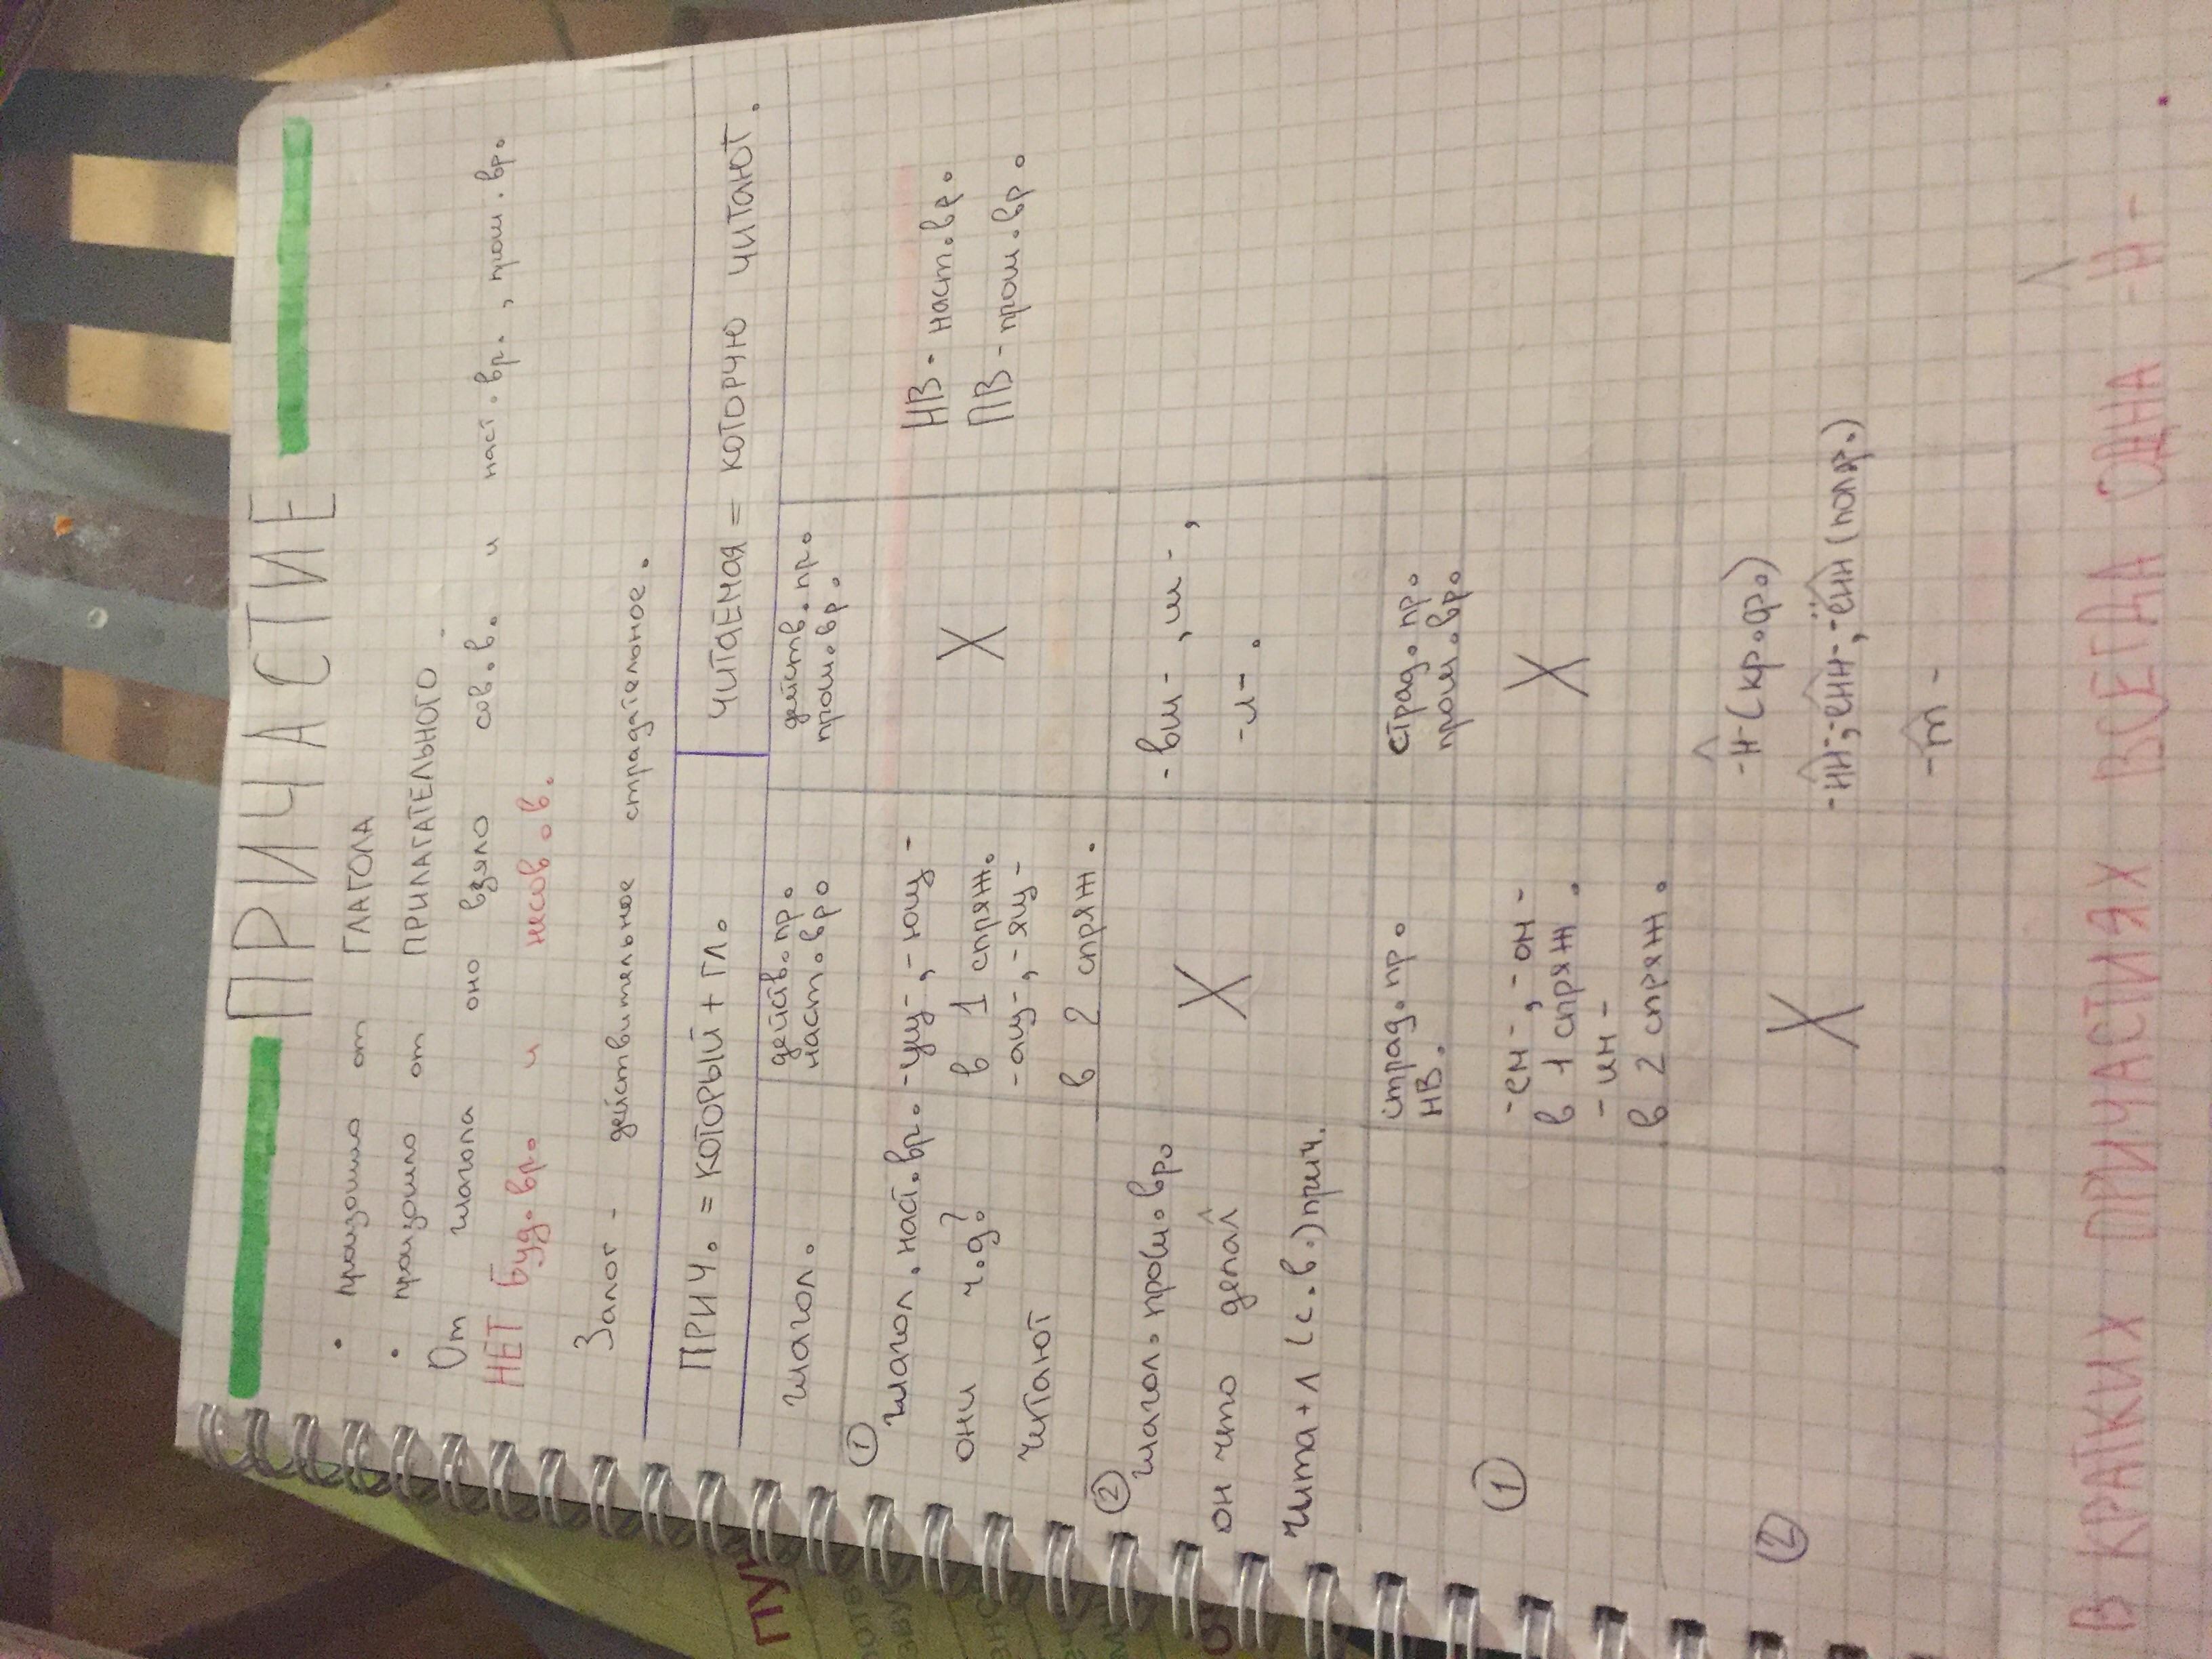 ПРИЧАСТИЕ
• произошло от ГЛАГОЛА
• произошло от ПРИЛАГАТЕЛЬНОГО
От глагола оно взяло сов.в. и наст.вр., прош.вр.
НЕТ буд.вр. и несов.в.
Залог - действительное страдательное.
ПРИЧ. = КОТОРЫЙ + ГЛ. ЧИТАЕМАЯ = КОТОРУЮ ЧИТАЮТ.
глагол. действ.пр. действ.пр.
наст.вр. прош.вр.
① глагол. наст.вр. -ущ-,-ющ- X НВ - наст.вр.
они ч.д? в 1 спряж. ПВ - прош.вр.
читают -ащ-,-ящ-
в 2 спряж.
② глагол. прош.вр. X -вш-,ш-,
он что делал -л-.
чита+л (с.в.) прич.
страд.пр. страд.пр.
НВ. прош.вр.
① -ем-,-ом- X
в 1 спряж.
-им-
в 2 спряж.
② X -н-(кр.ф.)
-нн-;-енн-,-ённ(полн.)
-т-
В КРАТКИХ ПРИЧАСТИЯХ ВСЕГДА ОДНА -Н-
ПУ